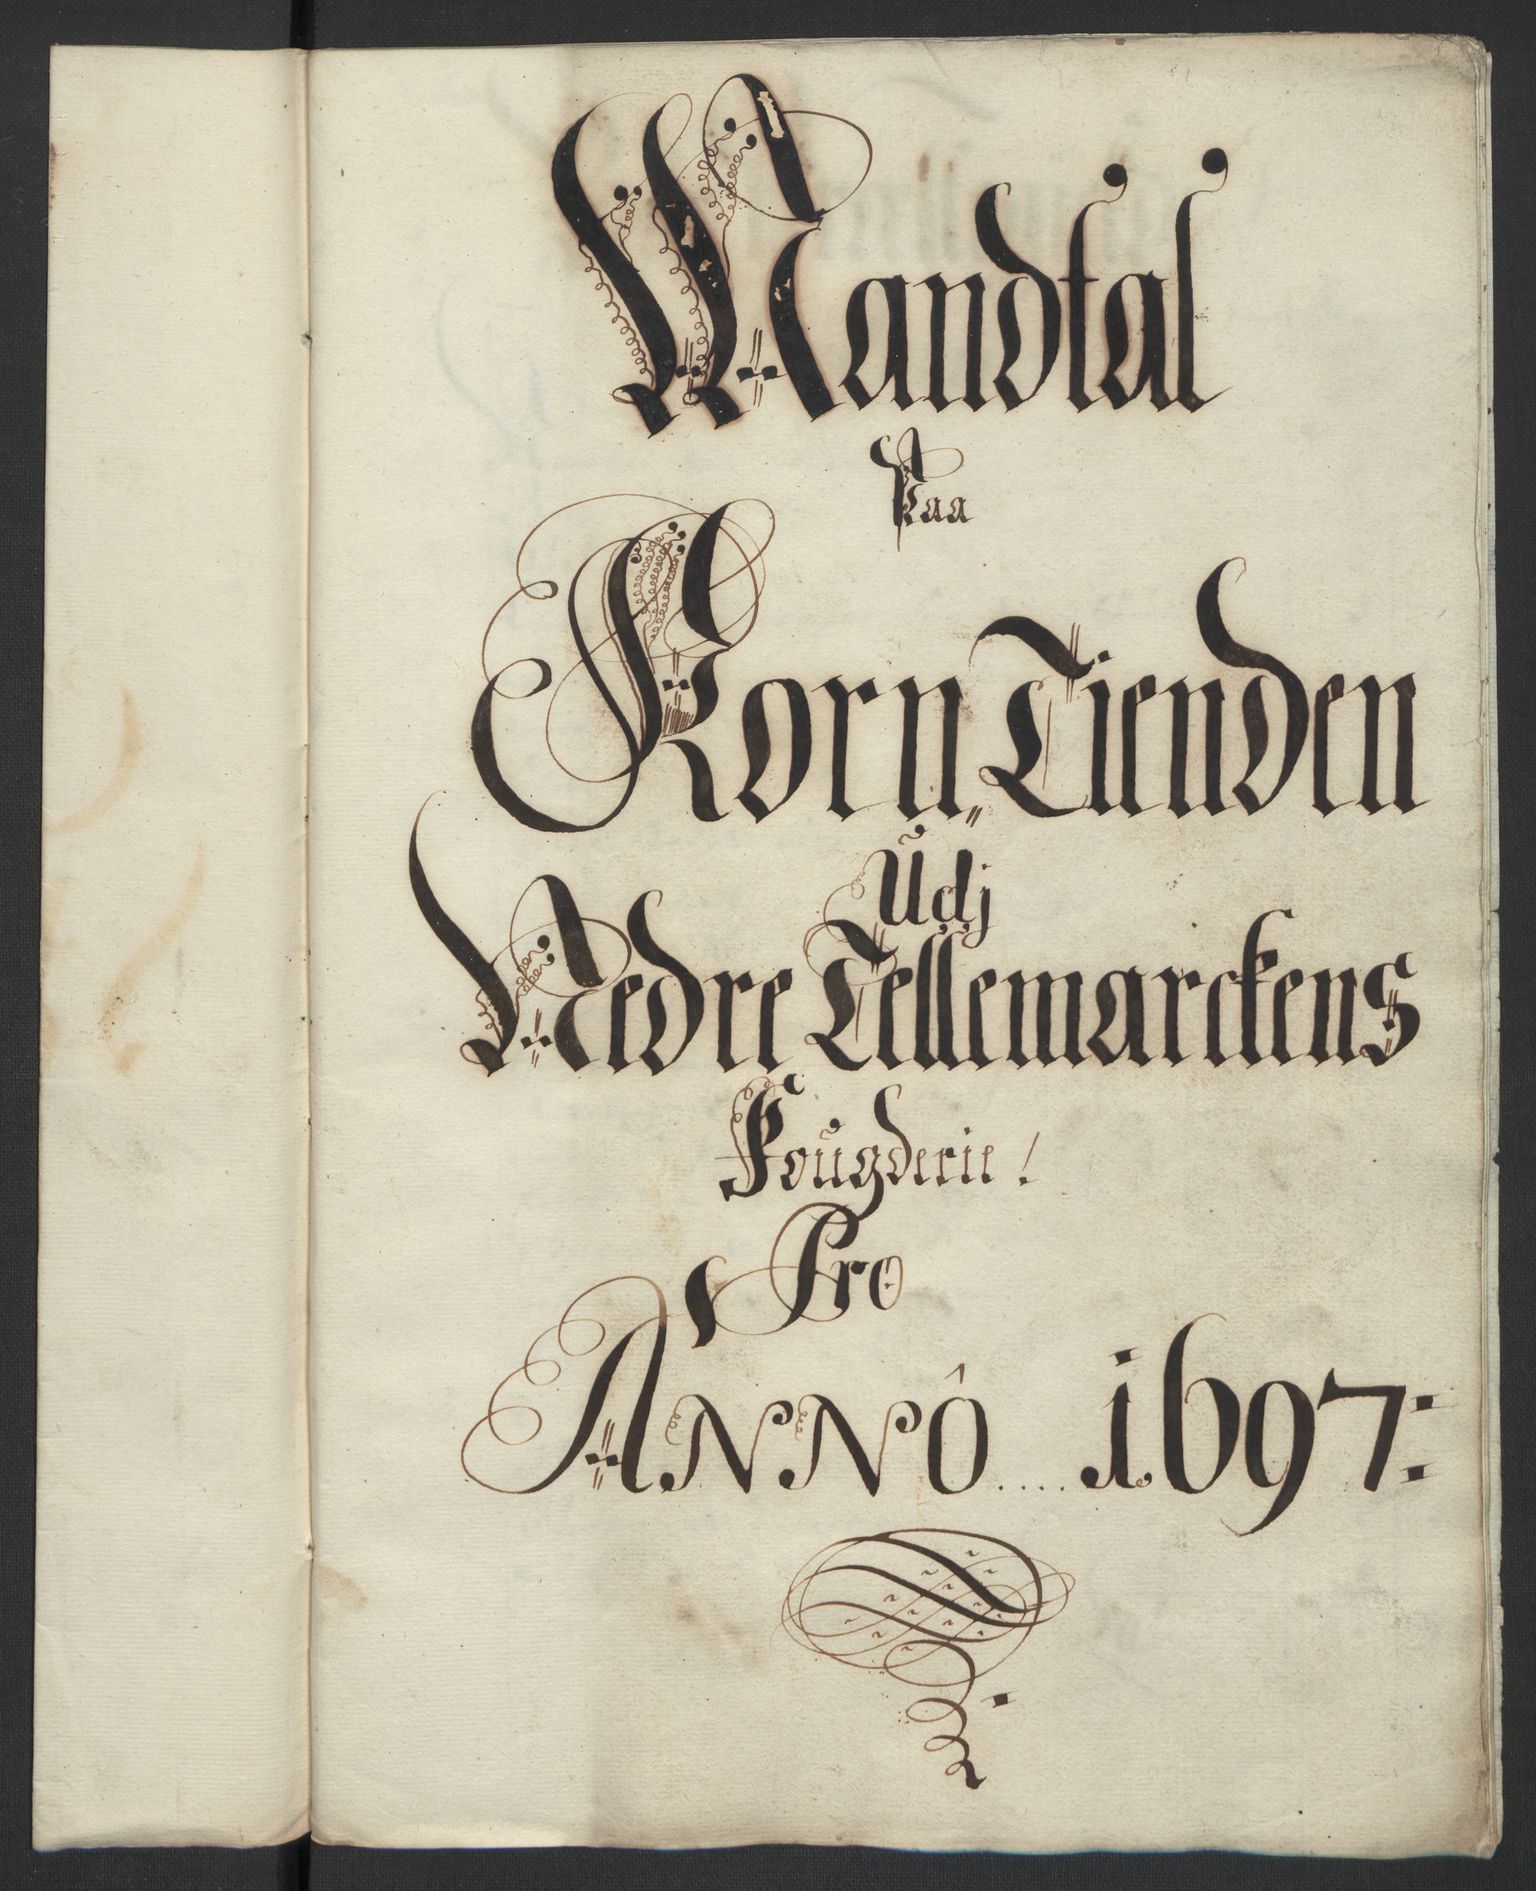 Mandtal
Paa
Korn„Tienden
Udj
Nedre Tellemarckens
Fougderie!
Pro
ANNÔ.... 1697: